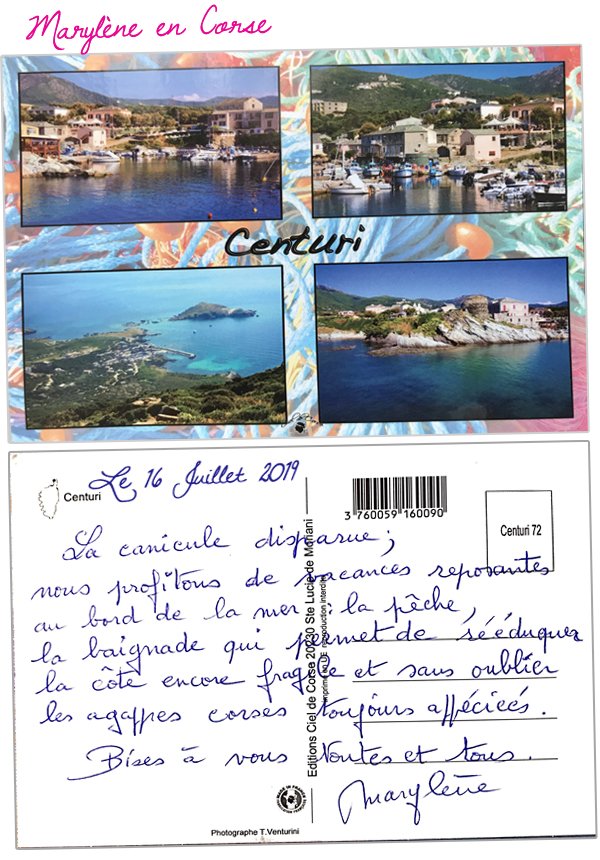 Marylène en Corse
Centuri
Centuri
Le 16 Juillet 2019
3 760059 160090
Centuri 72
La canicule disparue ;
nous profitons de vacances reposantes
au bord de la mer : la pêche,
la baignade qui permet de rééduquer
la côte encore fragile et sans oublier
les agappes corses toujours appéciées.
Bises à vous toutes et tous.
Marylène
Editions Ciel de Corse 20230 Ste Lucie de Moriani
Imprimé en UE reproduction interdite
Photographe T.Venturini